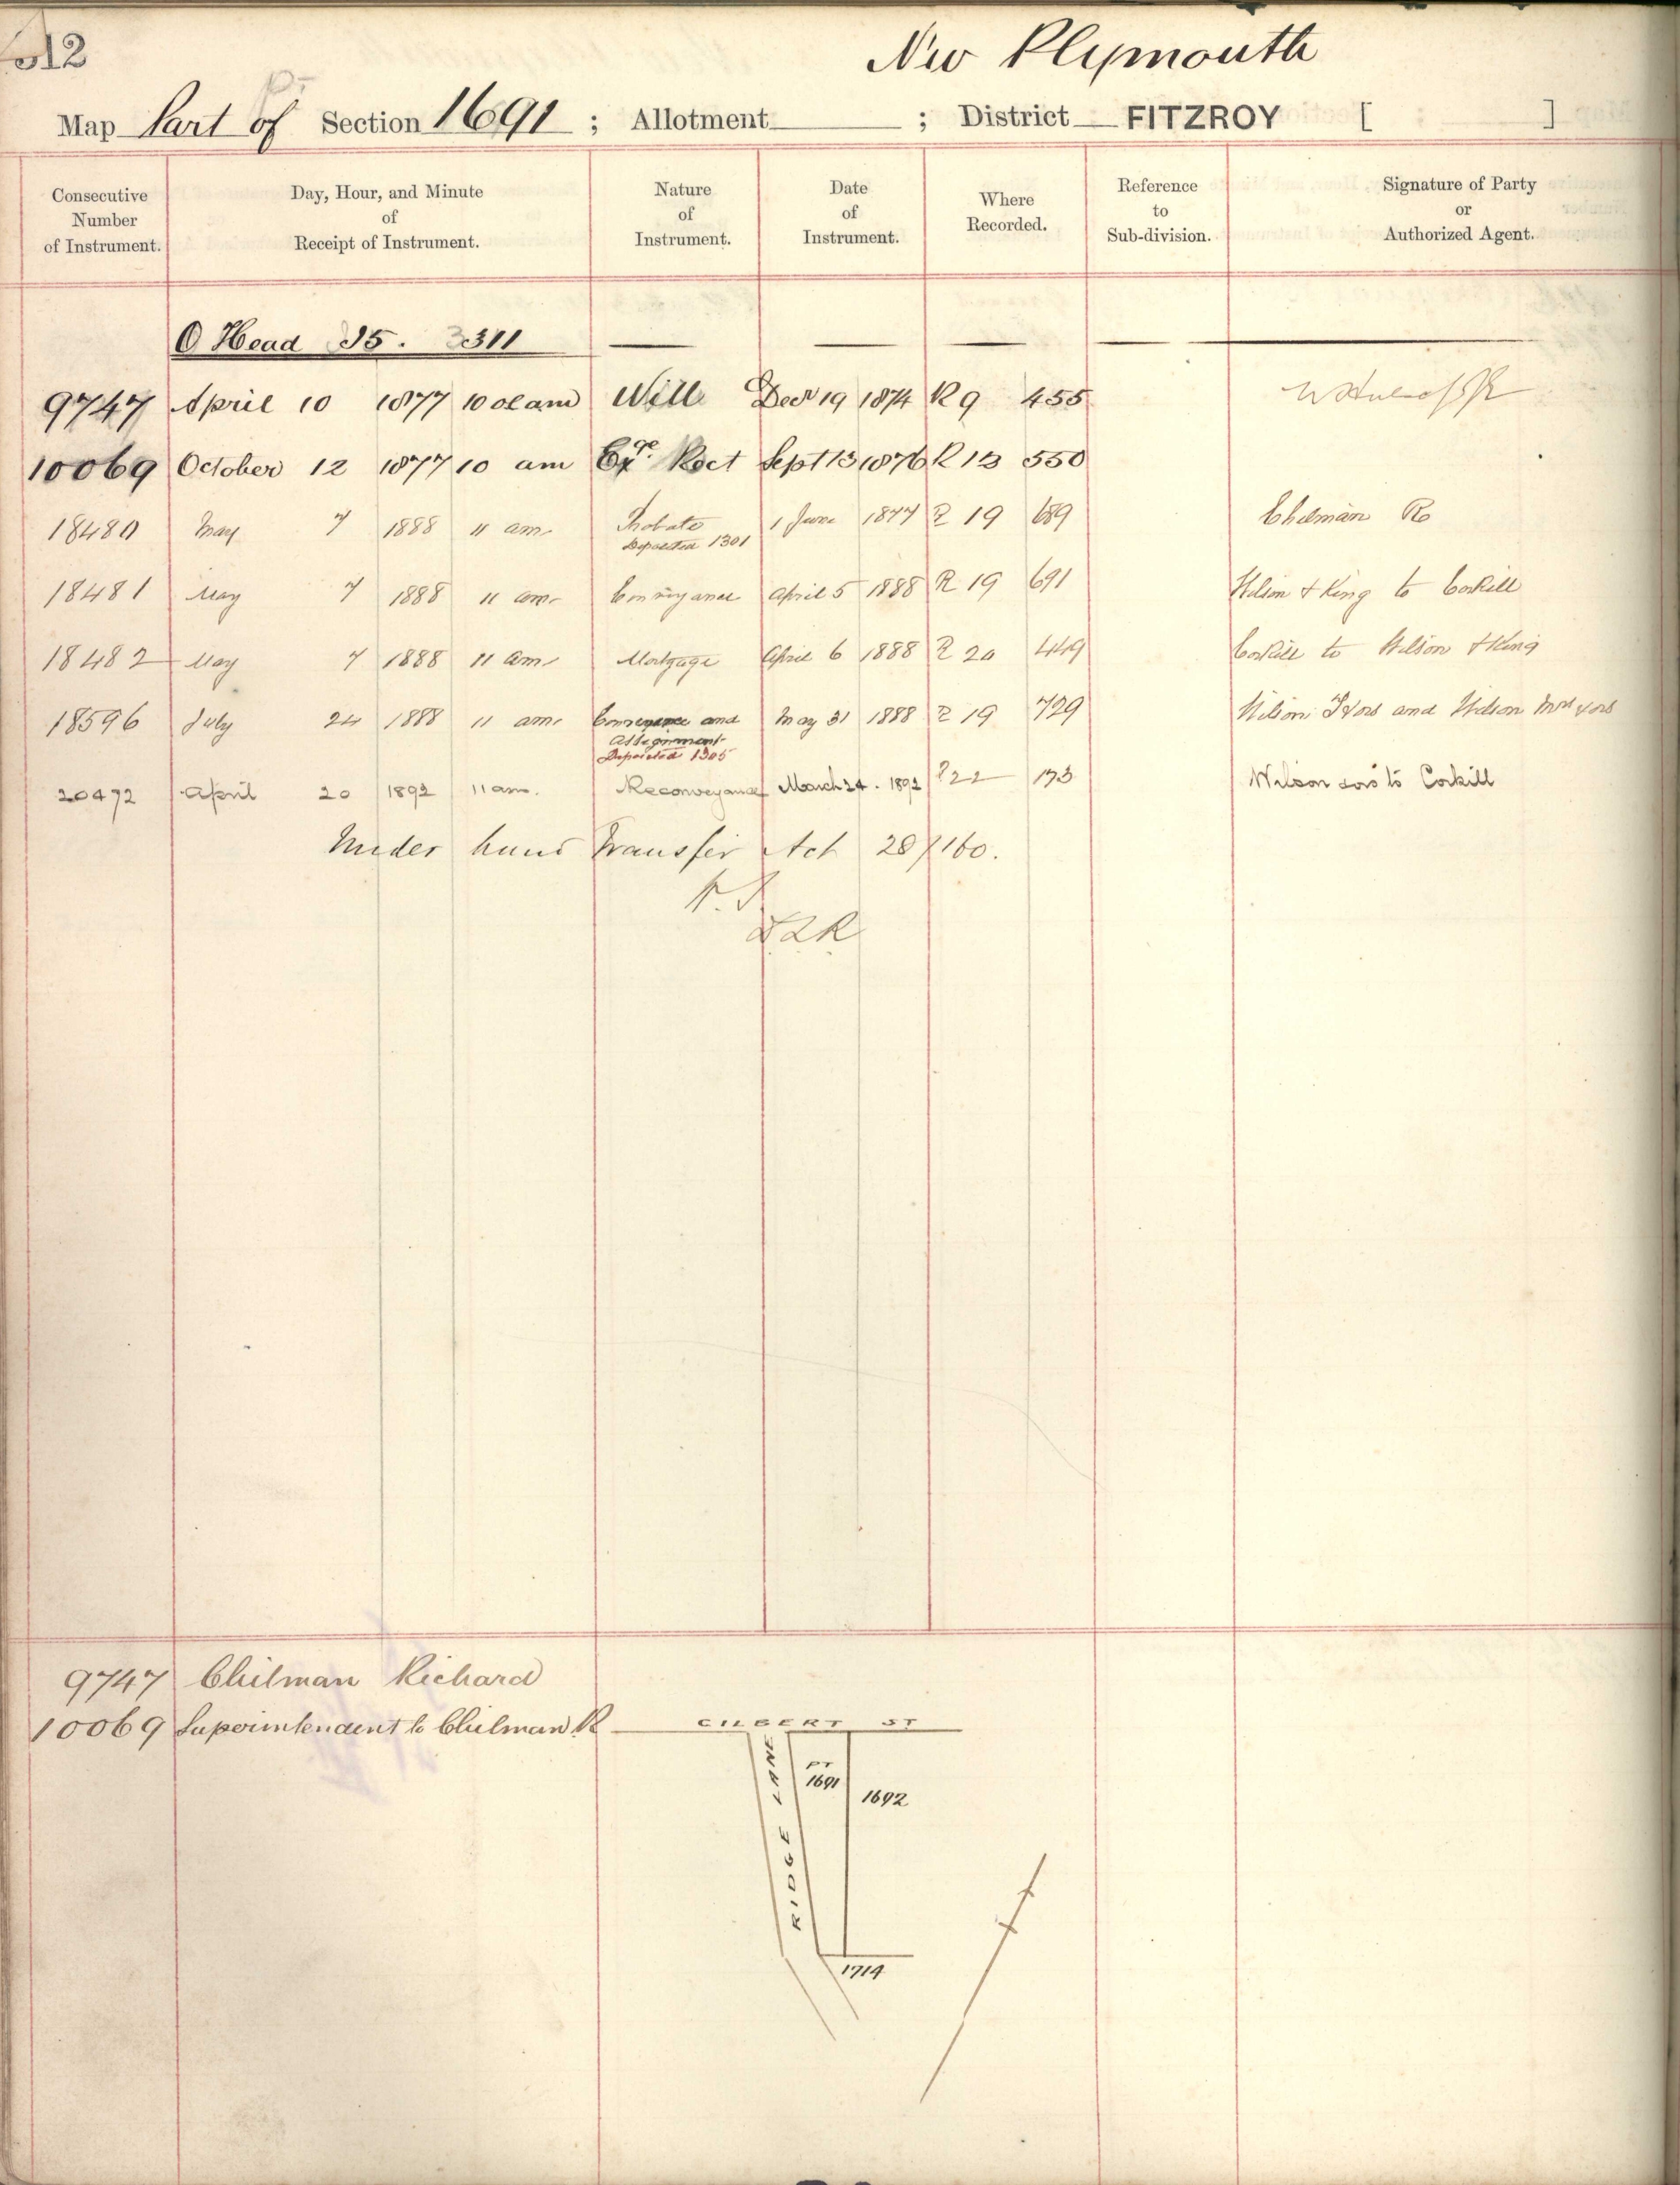 312
New Plymouth
Map Part of Section 1691 ; Allotment ; District FITZROY [ ]
Consecutive Number of Instrument.
Day, Hour, and Minute of Receipt of Instrument.
Nature of Instrument.
Date of Instrument.
Where Recorded.
Reference to Sub-division.
Signature of Party or Authorized Agent.
O Head 35. 3311
9747 April 10 1877 10 am Will Decr 19 1874 R 9 455
10069 October 12 1877 10 am Rect Sept 13 1876 R 13 550
18480 May 7 1888 11 am. Probate 1 June 1877 R 19 689 Chilman R
Deposited 1301
18481 May 7 1888 11 am. Conveyance April 5 1888 R 19 691 Wilson & King to Corkill
18482 May 7 1888 11 am. Mortgage April 6 1888 R 20 449 Corkill to Wilson & King
18596 July 24 1888 11 am. Conveyance and May 31 1888 R 19 729 Wilson and Wilson
Assignment
Deposited 1305
20472 April 20 1892 11 am. Reconveyance March 24. 1892 R 22 173 Wilson & ors to Corkill
Under Land Transfer Act 28/160.
9747 Chilman Richard
10069 Superintendent to Chilman R
GILBERT ST
RIDGE LANE
PT
1691
1692
1714